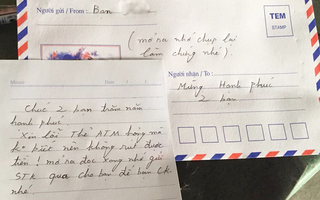 Người gửi / From : Bạn
TEM
STAMP
( mở ra nhớ chụp lại
làm chứng nhé ).
Người nhận / To :
Mừng Hạnh phúc
2 bạn
Chúc 2 bạn trăm năm
hạnh phúc
Xin lỗi Thẻ ATM hỏng mà
k biết nên không rút được
tiền ! mở ra đọc xong nhớ gửi
STK qua cho bạn để bạn CK
nhé.